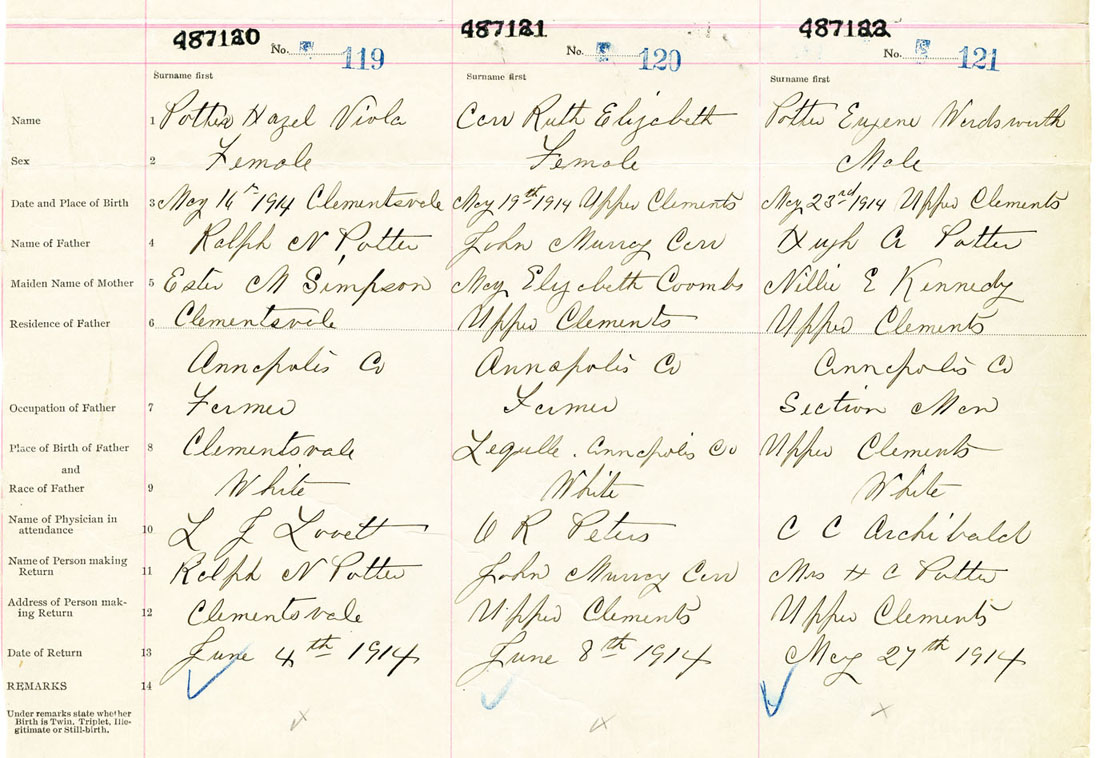 487120 487121 487122
No. 119 No. 120 No. 121
Surname first Surname first Surname first
Name 1 Potter Hazel Viola Carr Ruth Elizabeth Potter Eugene Wordsworth
Sex 2 Female Female Male
Date and Place of Birth 3 May 1914 Clementsvale May 19th 1914 Upper Clements May 23rd 1914 Upper Clements
Name of Father 4 Ralph N Potter John Murray Carr Hugh A Potter
Maiden Name of Mother 5 Ester M Simpson May Elizabeth Coombs Nillie E Kennedy
Residence of Father 6 Clementsvale Upper Clements Upper Clements
Annapolis Co Annapolis Co Annapolis Co
Occupation of Father 7 Farmer Farmer Section Man
Place of Birth of Father 8 Clementsvale Lequille . Annapolis Co Upper Clements
and
Race of Father 9 White White White
Name of Physician in
attendance 10 L J Lovett R Peters C C Archibald
Name of Person making
Return 11 Ralph N Potter John Murray Carr Mrs H C Potter
Address of Person mak-
ing Return 12 Clementsvale Upper Clements Upper Clements
Date of Return 13 June 4th 1914 June 8th 1914 May 27th 1914
REMARKS 14
Under remarks state whether
Birth is Twin, Triplet, Ille-
gitimate or Still-birth.